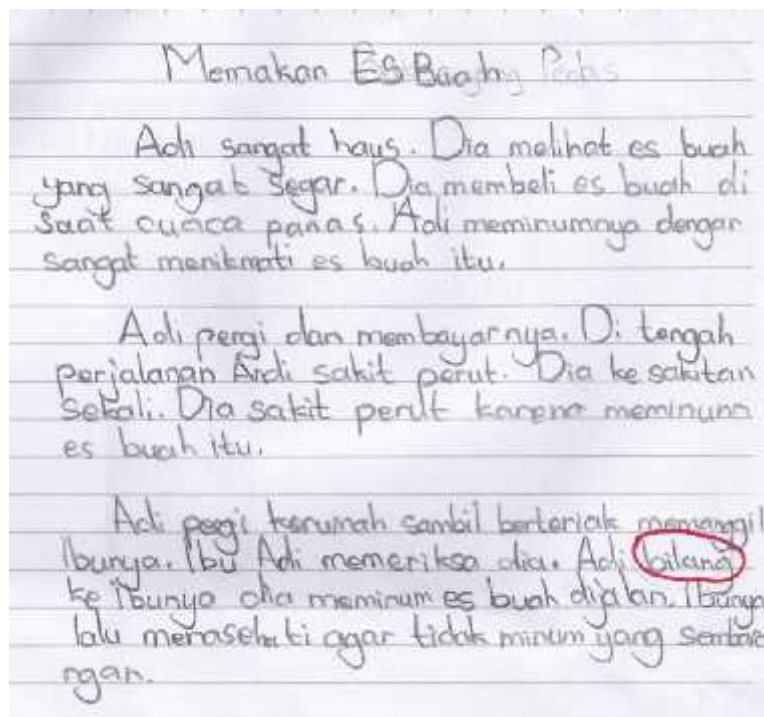 Memakan ES Buah
Adi sangat haus. Dia melihat es buah
yang sangat segar. Dia membeli es buah di
saat cuaca panas. Adi meminumnya dengan
sangat menikmati es buah itu.
Adi pergi dan membayarnya. Di tengah
perjalanan Andi sakit perut. Dia kesakitan
sekali. Dia sakit perut karena meminum
es buah itu.
Adi pergi kerumah sambil berteriak memanggil
Ibunya. Ibu Adi memeriksa dia. Adi bilang
ke Ibunya dia meminum es buah dijalan. Ibunya
lalu menasehati agar tidak minum yang sembare
ngan.